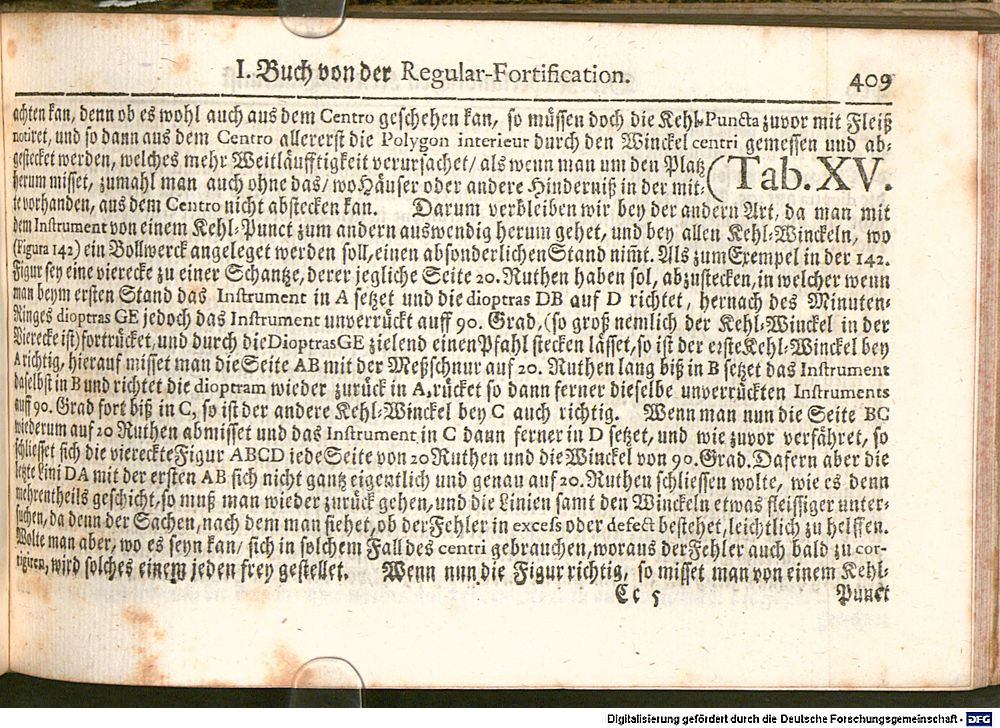 I. Buch von der Regular-Fortification. 409
achten kan, denn ob es wohl auch aus dem Centro geschehen kan, so müssen doch die Kehl-Puncta zuvor mit Fleiß
notiret, und so dann aus dem Centro allererst die Polygon interieur durch den Winckel centri gemessen und ab-
gestecket werden, welches mehr Weitläufftigkeit verursachet/ als wenn man um den Platz
herum misset, zumahl man auch ohne das/ wo Häuser oder andere Hinderniß in der mit- (Tab. XV.
te vorhanden, aus dem Centro nicht abstecken kan. Darum verbleiben wir bey der andern Art, da man mit
dem Instrument von einem Kehl-Punct zum andern auswendig herum gehet, und bey allen Kehl-Winckeln, wo
(Figura 142) ein Bollwerck angeleget werden soll, einen absonderlichen Stand nim̃t. Als zum Exempel in der 142.
Figur sey eine vierecke zu einer Schantze, derer jegliche Seite 20. Ruthen haben sol, abzustecken, in welcher wenn
man beym ersten Stand das Instrument in A setzet und die dioptras DB auf D richtet, hernach des Minuten-
Ringes dioptras GE jedoch das Instrument unverrückt auff 90. Grad, (so groß nemlich der Kehl-Winckel in der
Vierecke ist) fortrücket, und durch die Dioptras GE zielend einen Pfahl stecken lässet, so ist der erste Kehl-Winckel bey
A richtig, hierauf misset man die Seite AB mit der Meßschnur auf 20. Ruthen lang biß in B setzet das Instrument
daselbst in B und richtet die dioptram wieder zurück in A, rücket so dann ferner dieselbe unverrückten Instruments
auff 90. Grad fort biß in C, so ist der andere Kehl-Winckel bey C auch richtig. Wenn man nun die Seite BC
wiederum auf 20 Ruthen abmisset und das Instrument in C dann ferner in D setzet, und wie zuvor verfähret, so
schliesset sich die viereckte Figur ABCD iede Seite von 20 Ruthen und die Winckel von 90. Grad. Dafern aber die
letzte Lini DA mit der ersten AB sich nicht gantz eigentlich und genau auf 20. Ruthen schliessen wolte, wie es denn
mehrentheils geschicht, so muß man wieder zurück gehen, und die Linien samt den Winckeln etwas fleissiger unter-
suchen, da denn der Sachen, nach dem man siehet, ob der Fehler in excess oder defect bestehet, leichtlich zu helffen.
Wolte man aber, wo es seyn kan/ sich in solchem Fall des centri gebrauchen, woraus der Fehler auch bald zu cor-
rigiren, wird solches einem jeden frey gestellet. Wenn nun die Figur richtig, so misset man von einem Kehl-
Cc 5 Punct
Digitalisierung gefördert durch die Deutsche Forschungsgemeinschaft - DFG